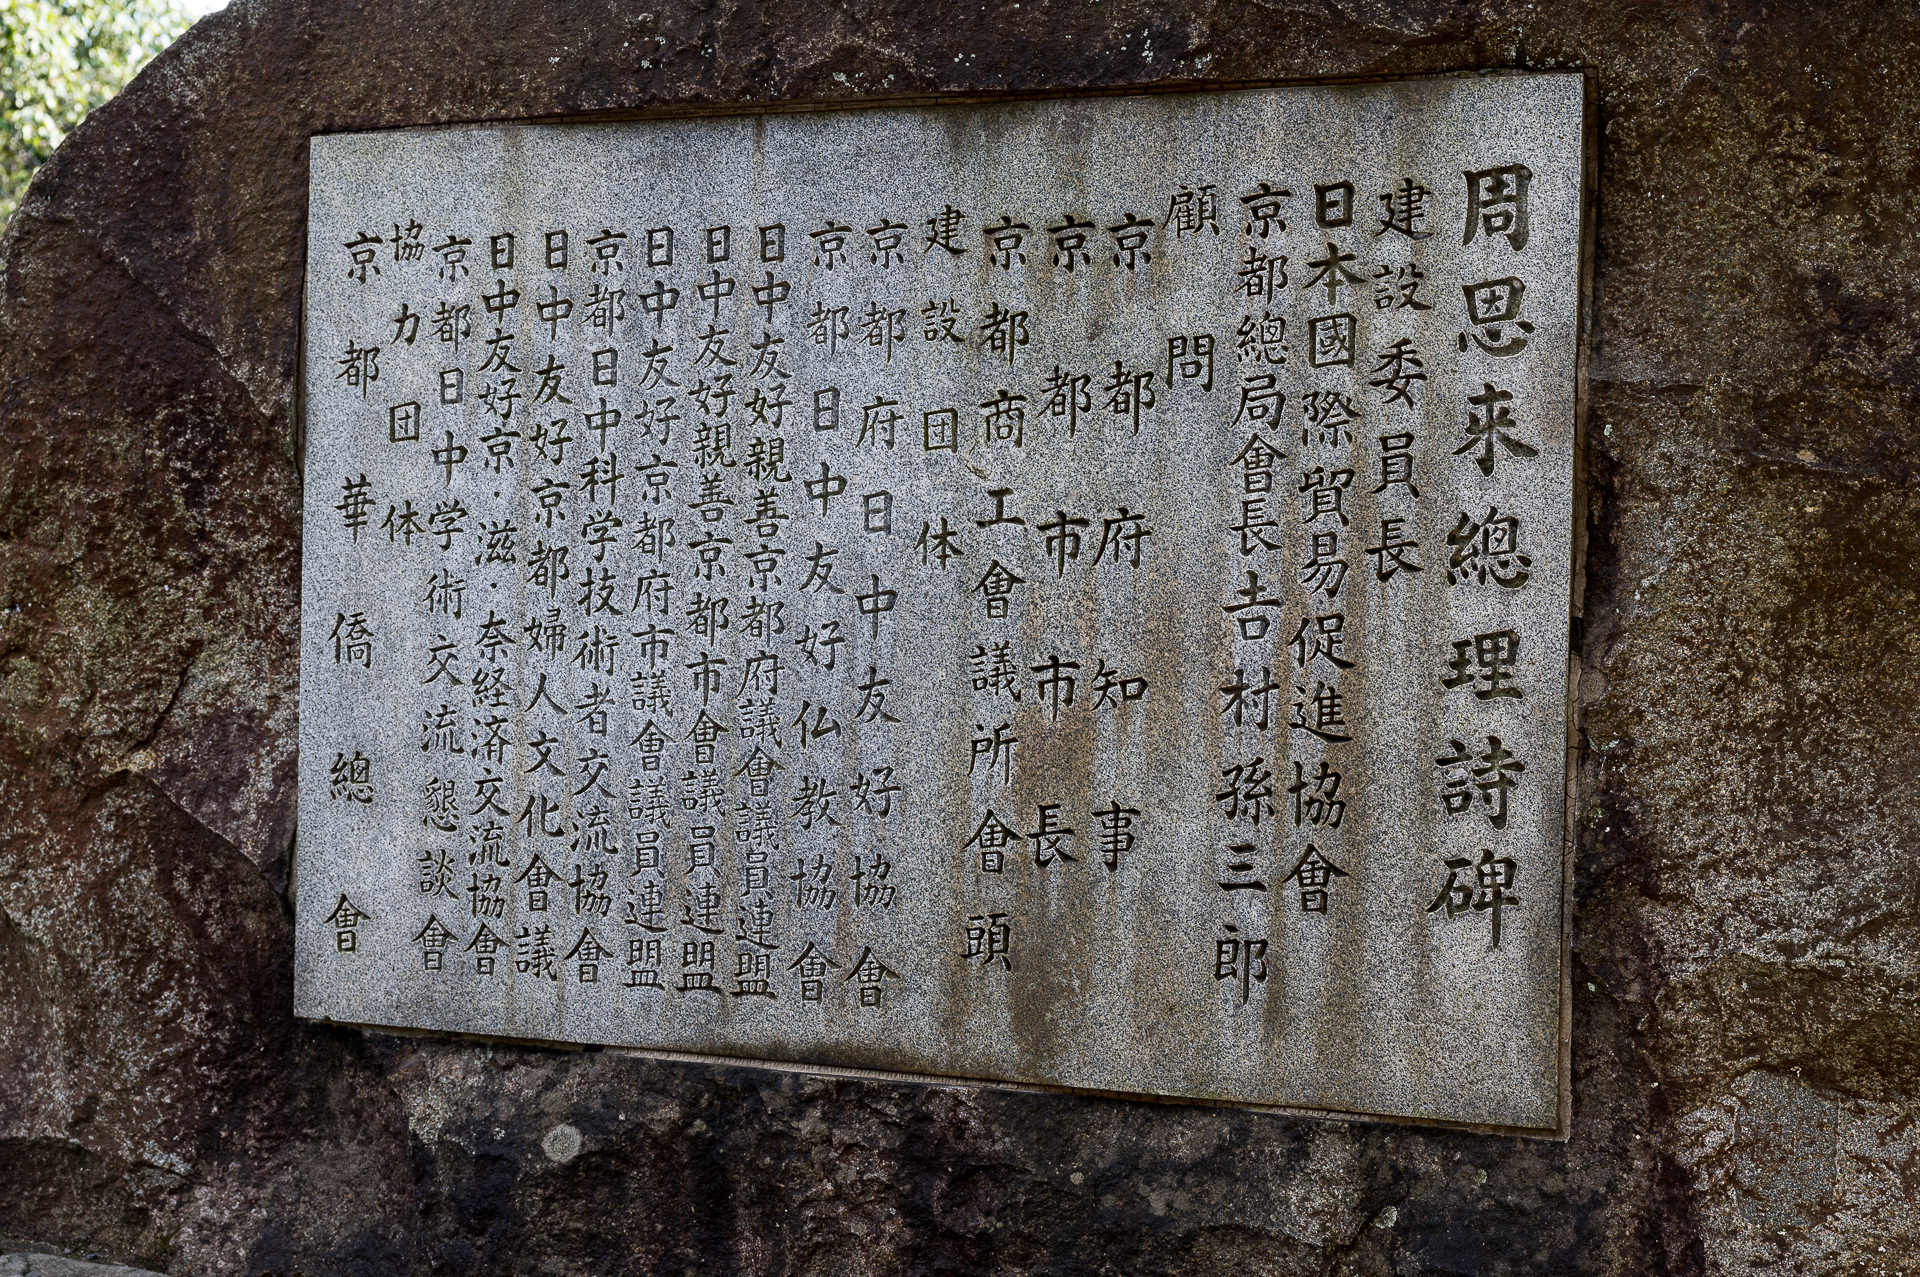 周恩来總理詩碑
建設委員長
日本國際貿易促進協會
京都總局會長吉村孫三郎
顧問
京都府知事
京都市市長
京都商工會議所會頭
建設团体
京都府日中友好協會
京都日中友好仏教協會
日中友好親善京都府議會議員連盟
日中友好親善京都市會議員連盟
日中友好京都府市議會議員連盟
京都日中科学技術者交流協會
日中友好京都婦人文化會議
日中友好京・滋・奈経済交流協會
京都日中学術交流懇談會
協力团体
京都華僑總會